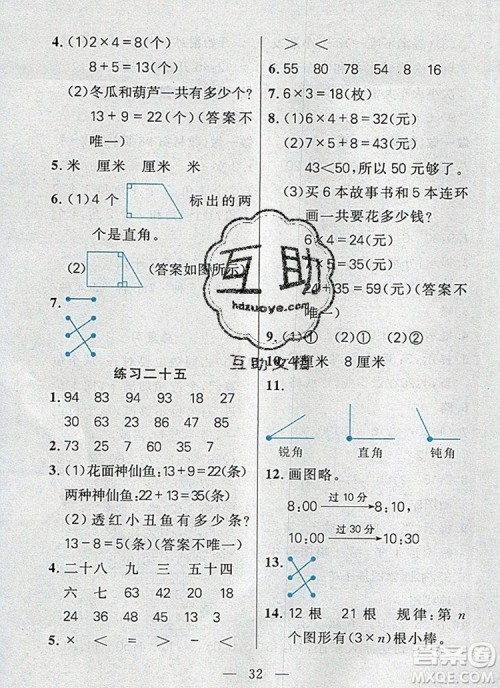 4. (1)2×4=8(个)
8+5=13(个)
(2)冬瓜和葫芦一共有多少个?
13+9=22(个)(答案不
唯一)
5. 米 厘米 厘米 米
6. (1)4个 标出的两
个是直角。
(2) (答案如图所示)
7.
练习二十五
1. 94 83 93 44 94
83 24 48 31 87
2. 27 60 9 74 15
3. (1)花面神仙鱼:13+9=22(条)
两种神仙鱼:22+13=35(条)
(2)透红小丑鱼有多少条?
13-8=5(条)(答案不唯一)
4. 二十八 九 三 五十四
七 六 四 三十六
5. × + < - < =
> < >
6. 55 80 78 54 8 16
7. 6×3=18(枚)
8. (1)6×4+8=32(元)
(2)7×5+8=43(元)
43<50,所以50元够了。
(3)买6本故事书和5本连环
画一共要花多少钱?
6×4=24(元)
5×7=35(元)
24+35=59(元)
(答案不唯一)
9. (1)① (2)① ②
10. 4厘米 8厘米
11.
锐角 直角 钝角
12. 画图略。
8:00 过10分 8:10
10:00 过30分 10:30
13.
14. 12根 21根 规律:第n
个图形有(3×n)根小棒。
32
互助
hdzuoye.com
互助文档